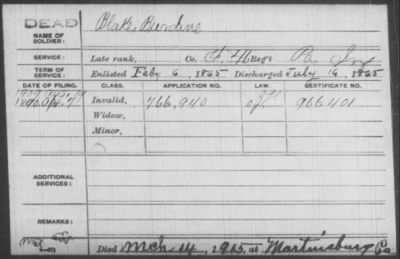 DEAD
NAME OF SOLDIER: Blake, Burdine
SERVICE: Late rank, Co. F. 46 Reg't Pa Inf
TERM OF SERVICE: Enlisted Feby 6, 1865 Discharged July 16, 1865
DATE OF FILING. CLASS. APPLICATION NO. LAW. CERTIFICATE NO.
Invalid, 766,940 966.401
Widow,
Minor,
ADDITIONAL SERVICES:
REMARKS:
Died Mch 14, 1915, at Martinsburg Pa